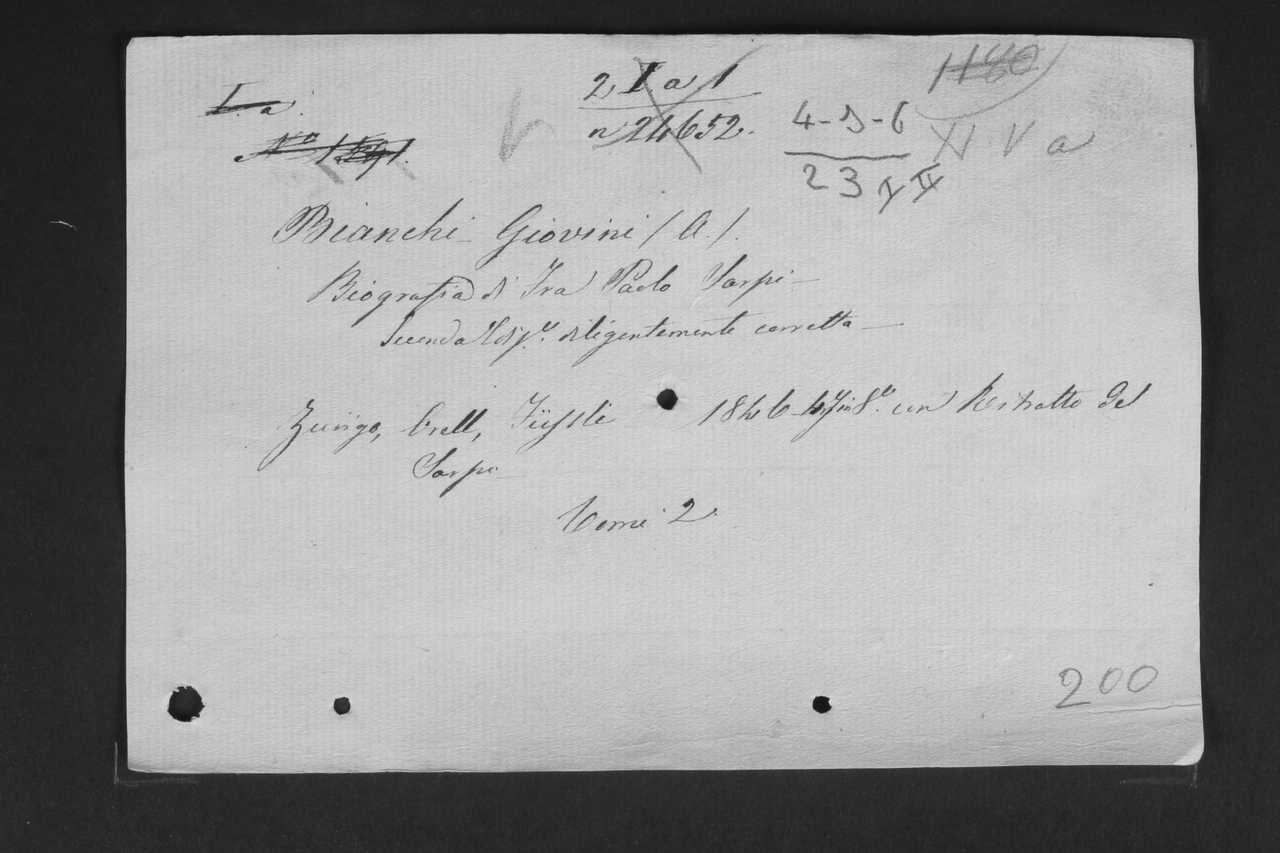 I. a.
2 I a 1
n 24652.
1180
4-D-6
23 I II
XI V a
Bianchi Giovini (A.).
Biografia di Fra Paolo Sarpi —
Seconda Ediz.e diligentemente corretta —
Zurigo, Orell, Füssli 1846 in 8.o con Ritratto del
Sarpi —
Tomi 2.
200